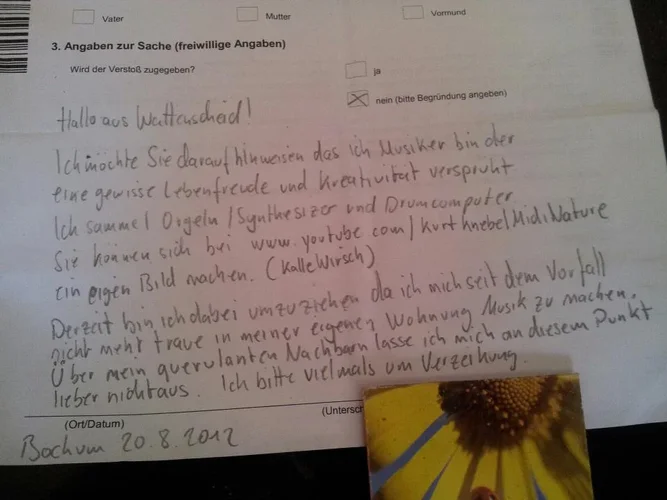 Vater Mutter Vormund
3. Angaben zur Sache (freiwillige Angaben)
Wird der Verstoß zugegeben? ja
nein (bitte Begründung angeben)
Hallo aus Wattenscheid!
Ich möchte Sie darauf hinweisen das ich Musiker bin der
eine gewisse Lebenfreude und Kreativität versprüht
Ich sammel Orgeln/Synthesizer und Drumcomputer
Sie können sich bei www.youtube com/KurtKnebel/MidiNature
ein eigen Bild machen. (KalleWirsch)
Derzeit bin ich dabei umzuziehen da ich mich seit dem Vorfall
nicht mehr traue in meiner eigenen Wohnung Musik zu machen.
Über mein querulanten Nachbarn lasse ich mich an diesem Punkt
lieber nicht aus. Ich bitte vielmals um Verzeihung.
(Ort/Datum) (Untersch
Bochum 20.8.2012